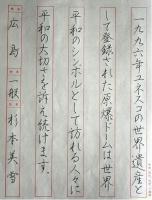 一九九六年ユネスコの世界遺産と
して登録された原爆ドームは世界
平和のシンボルとして訪れる人々に
平和の大切さを訴え続けます。
広島 一般 杉本英雪